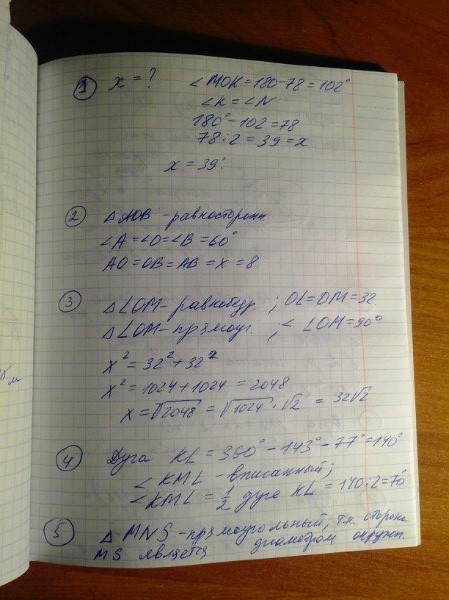 1 x = ? ∠MOK = 180 - 78 = 102°
∠K = ∠N
180° - 102 = 78
78 : 2 = 39 = x
x = 39°
2 △AOB - равносторонн
∠A = ∠O = ∠B = 60°
AO = OB = AB = x = 8
3 △LOM - равнобедр. ; OL = OM = 32
△LOM - прямоуг. ; ∠LOM = 90°
x² = 32² + 32²
x² = 1024 + 1024 = 2048
x = √2048 = √1024 · √2 = 32√2
4 Дуга KL = 360° - 143° - 77° = 140°
∠KML - вписанный;
∠KML = 1/2 дуге KL = 140 : 2 = 70°
5 △MNS - прямоугольный, т.к. сторона
MS является диаметром окружн.
м